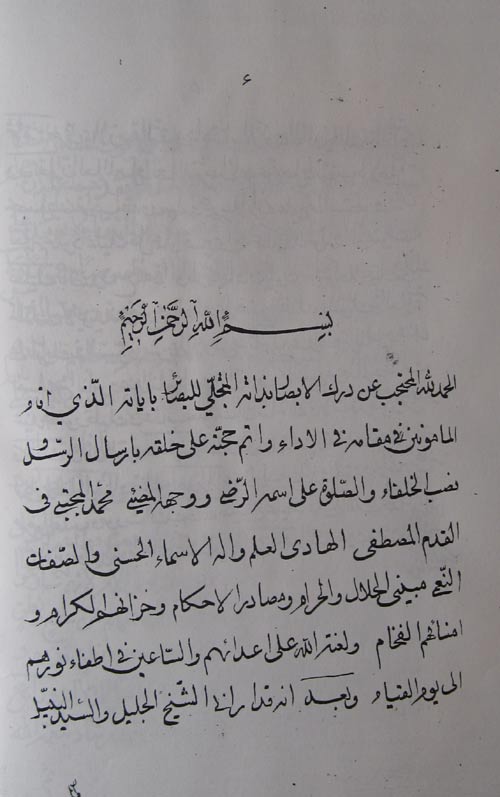 ع
بسم الله الرحمن الرحيم
الحمد لله المحتجب عن درك الابصار بذاته المتجلي للبصائر باياته الذي اناء
المامونين في مقامه في الاداء واتم حجته على خلقه بارسال الرسل و
نصب الخلفاء والصلوة على اسمه الرضي ووجهه المضيئ محمد المجتبى في
القدم المصطفى الهادي العلم واله الاسماء الحسنى والصفات
مبيني الحلال والحرام ومصادر الاحكام وخزانهم الكرام و
امنائهم الفخام ولعنة الله على اعدائهم والساعين في اطفاء نورهم
الى يوم القيام وبعد انه قد امراني الشيخ الجليل والسيد النبيل